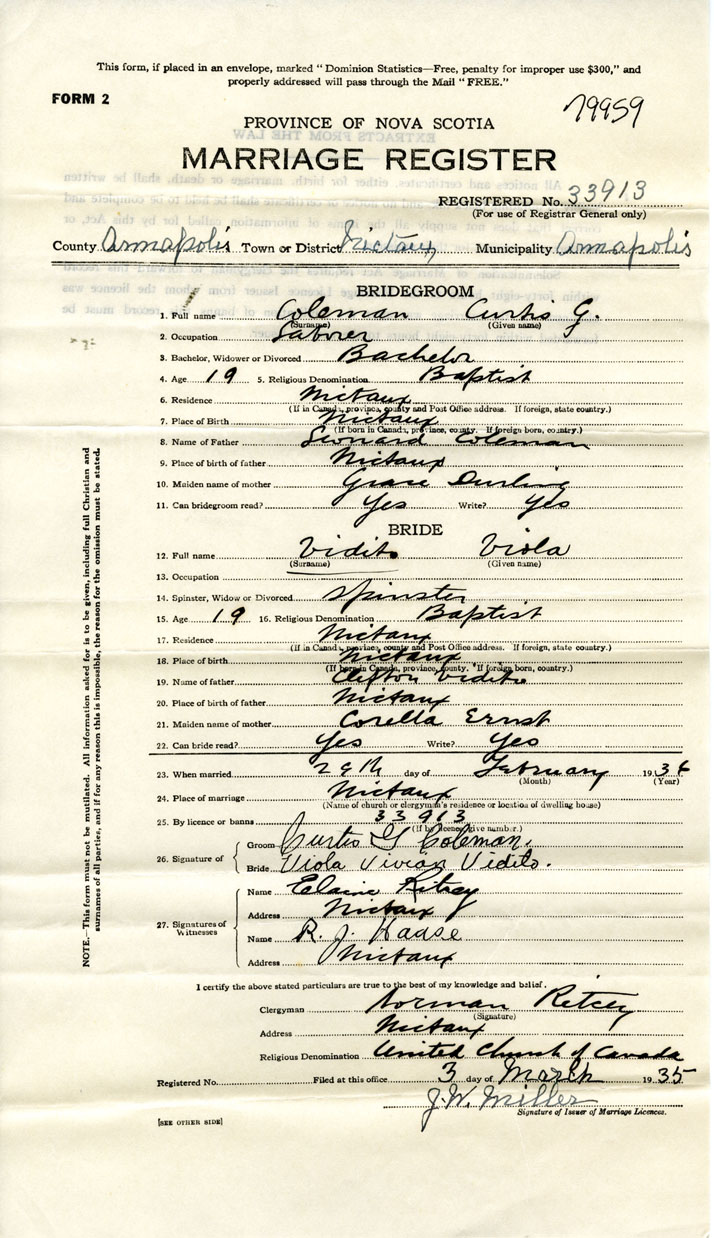 This form, if placed in an envelope, marked "Dominion Statistics—Free, penalty for improper use $300," and
properly addressed will pass through the Mail "FREE."
FORM 2
79959
PROVINCE OF NOVA SCOTIA
MARRIAGE REGISTER
REGISTERED No. 33913
(For use of Registrar General only)
County Annapolis Town or District Nictaux Municipality Annapolis
BRIDEGROOM
1. Full name Coleman Curtis G.
(Surname) (Given name)
2. Occupation Laborer
3. Bachelor, Widower or Divorced Bachelor
4. Age 19 5. Religious Denomination Baptist
6. Residence Nictaux
(If in Canada, province, county and Post Office address. If foreign, state country.)
7. Place of Birth Nictaux
(If born in Canada, province, county. If foreign born, country.)
8. Name of Father Leonard Coleman
9. Place of birth of father Nictaux
10. Maiden name of mother Grace Durling
11. Can bridegroom read? Yes Write? Yes
BRIDE
12. Full name Vidito Viola
(Surname) (Given name)
13. Occupation
14. Spinster, Widow or Divorced Spinster
15. Age 19 16. Religious Denomination Baptist
17. Residence Nictaux
(If in Canada, province, county and Post Office address. If foreign, state country.)
18. Place of birth Nictaux
(If born in Canada, province, county. If foreign born, country.)
19. Name of father Clifton Vidito
20. Place of birth of father Nictaux
21. Maiden name of mother Corella Ernst
22. Can bride read? Yes Write? Yes
23. When married 29th day of February 1936
(Month) (Year)
24. Place of marriage Nictaux
(Name of church or clergyman's residence or location of dwelling house)
25. By licence or banns 33913
(If by licence, give number.)
26. Signature of
Groom Curtis G Coleman.
Bride Viola Vivian Vidito.
27. Signatures of
Witnesses
Name Elaine Ritcey
Address Nictaux
Name R. J. Haase
Address Nictaux
I certify the above stated particulars are true to the best of my knowledge and belief.
Clergyman Norman Ritcey
(Signature)
Address Nictaux
Religious Denomination United Church of Canada
Registered No. Filed at this office 3 day of March 1935
J. W. Miller
Signature of Issuer of Marriage Licences.
[SEE OTHER SIDE]
NOTE.—This form must not be mutilated. All information asked for is to be given, including full Christian and
surnames of all parties, and if for any reason this is impossible, the reason for the omission must be stated.